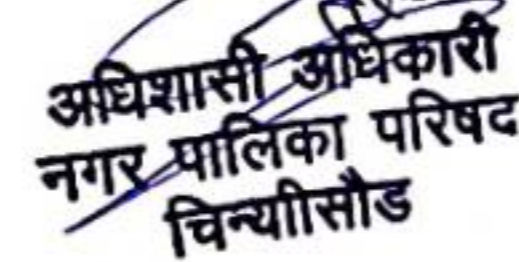 अधिशासी अधिकारी
नगर पालिका परिषद
चिन्याीसौड